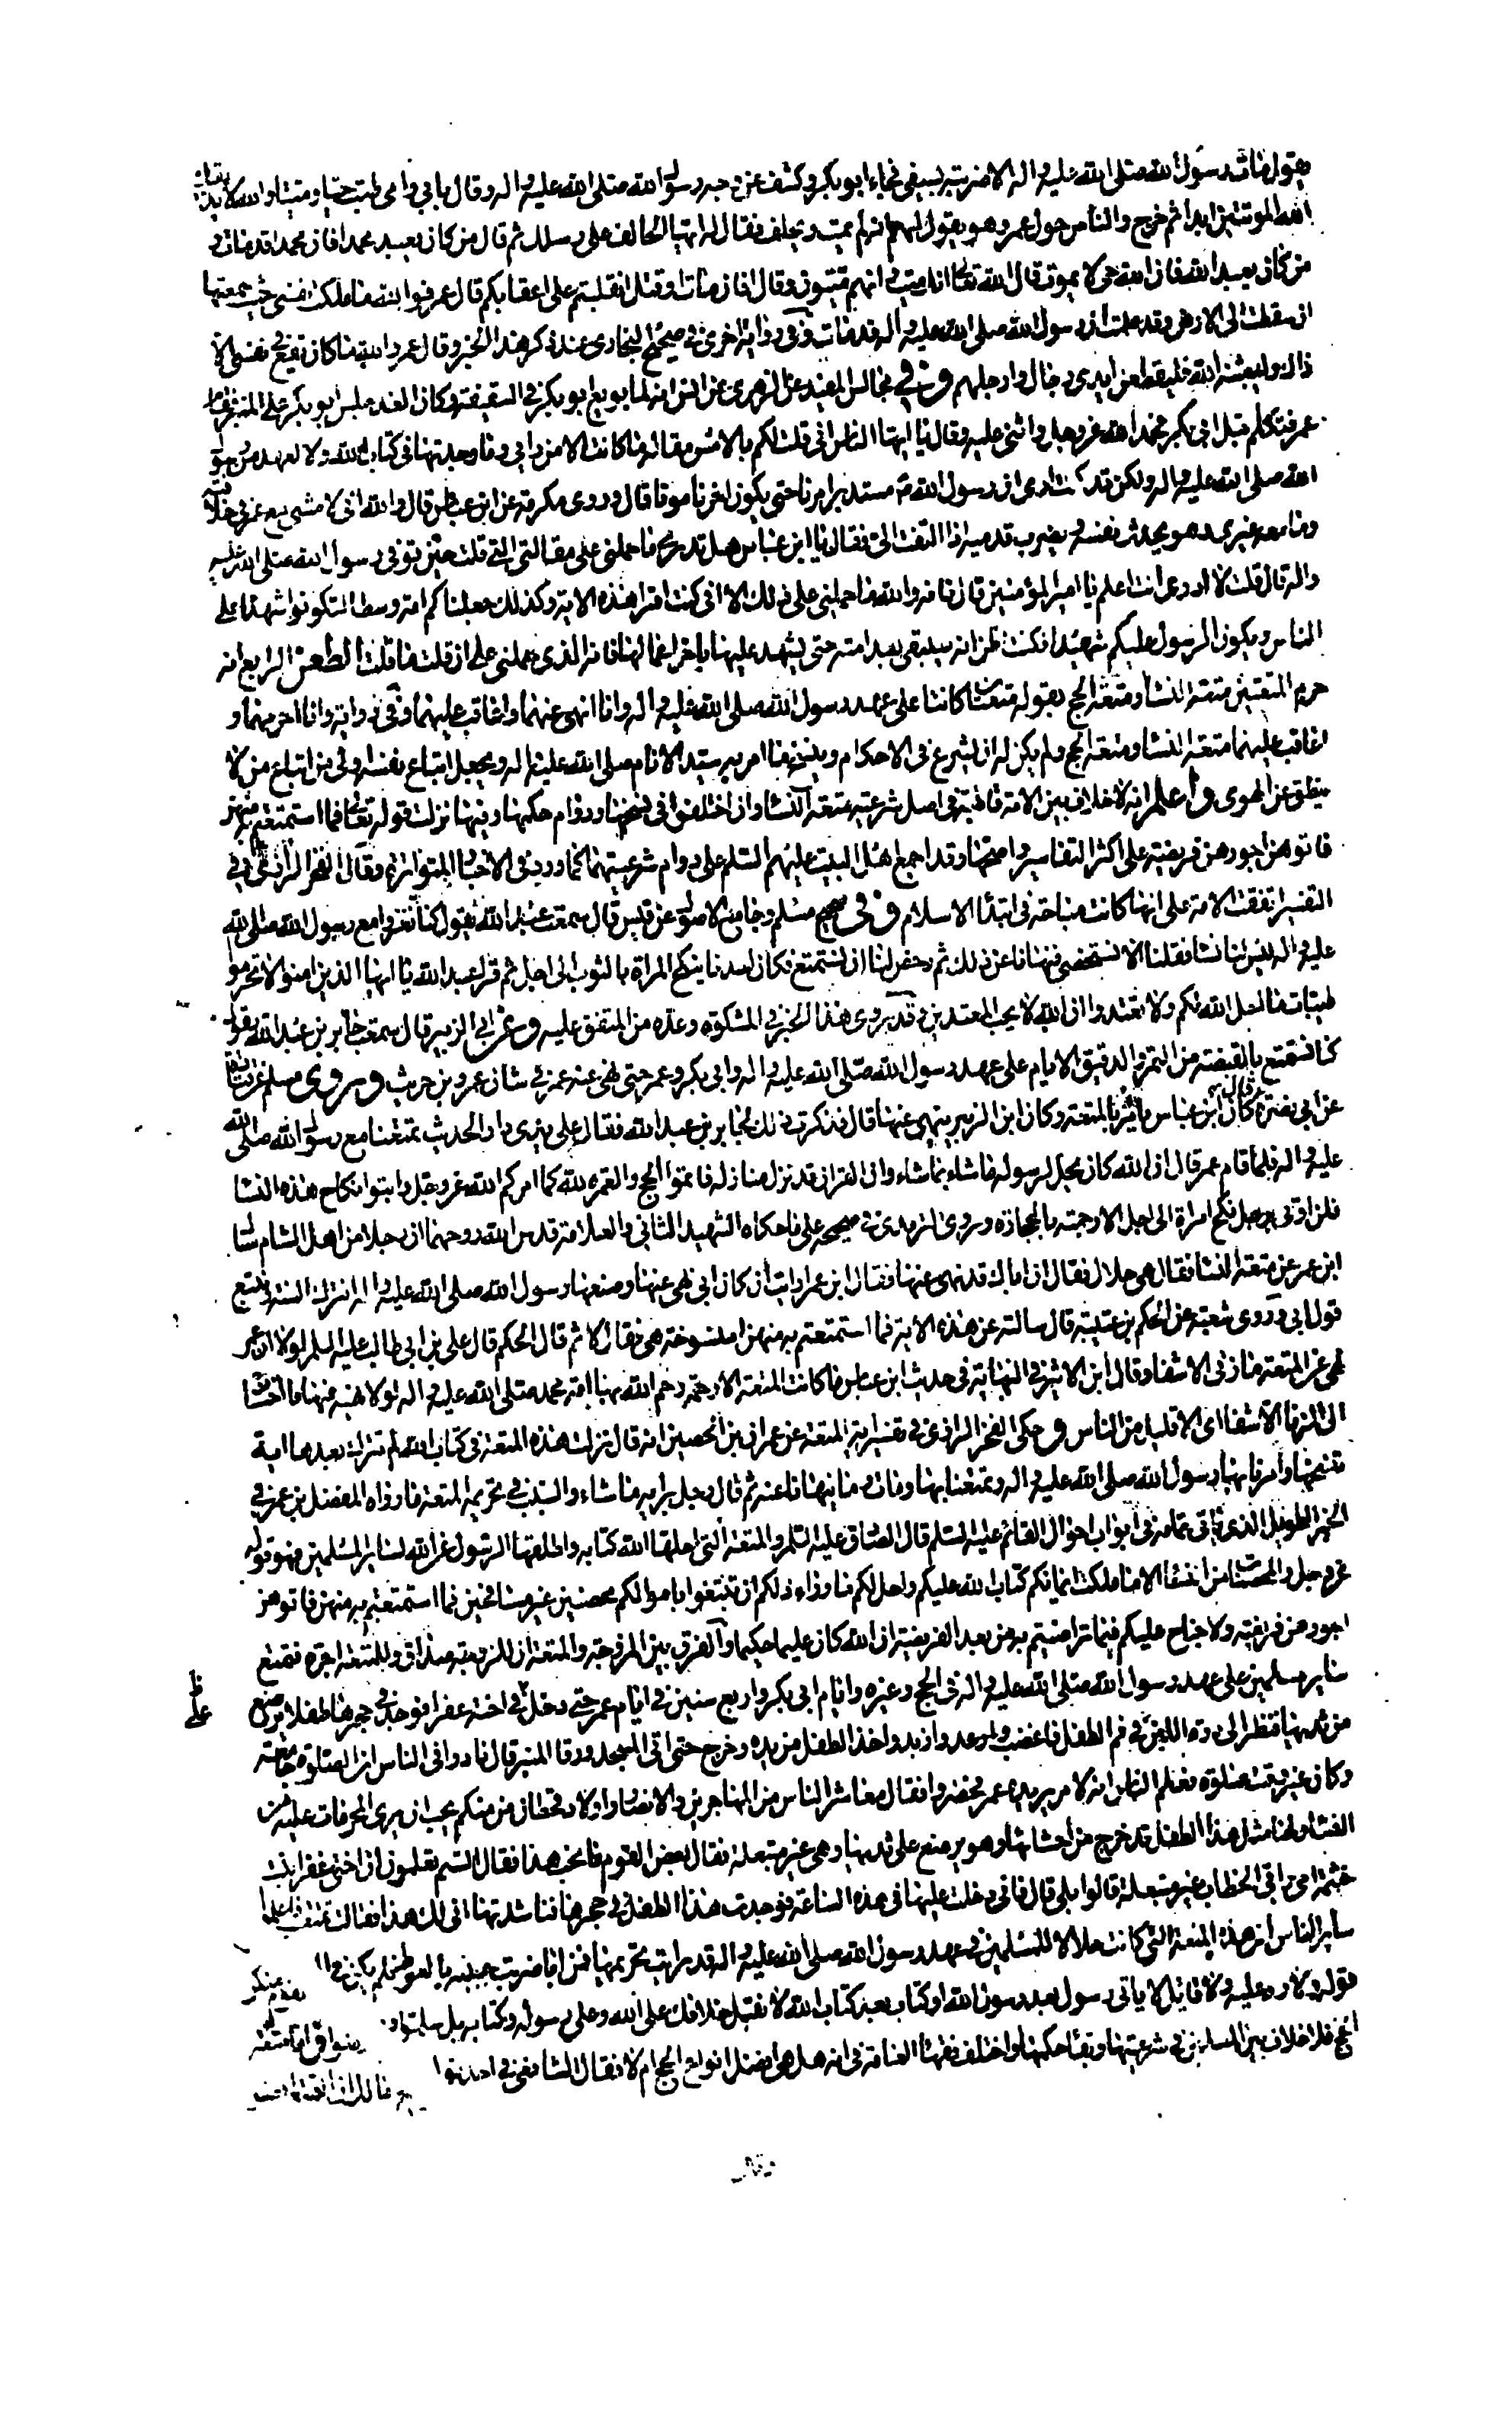 يقول مات رسول الله صلى الله عليه واله الا ضربته بسيفي فجاء ابو بكر وكشف عن وجه رسول الله صلى الله عليه واله وقال بابي وامي طبت حيا وميتا والله لا يذيقك
الله الموتتين ابدا ثم خرج والناس حول عمر وهو يقول لهم انه لم يمت ويحلف فقال له ايها الحالف على رسلك ثم قال من كان يعبد محمدا فان محمدا قد مات و
من كان يعبد الله فان الله حي لا يموت قال الله تعالى انك ميت وانهم ميتون وقال افان مات او قتل انقلبتم على اعقابكم قال عمر فوالله ما ملكت نفسي حيث سمعتها
ان سقطت الى الارض وقد علمت ان رسول الله صلى الله عليه واله قد مات وفي رواية اخرى في صحيح البخاري عند ذكر هذا الخبر وقال عمر والله ما كان يقع في نفسي الا
ذاك وليبعثنه الله فليقطعن ايدي رجال وارجلهم وفي مجالس المفيد عن الزهري عن انس انه لما بويع ابو بكر في السقيفة وكان الغد جلس ابو بكر على المنبر فقام
عمر فتكلم قبل ابي بكر فحمد الله عز وجل واثنى عليه وقال يا ايها الناس اني قلت لكم بالامس مقالة ما كانت الا من رايي وما وجدتها في كتاب الله ولا لعهد من رسول
الله صلى الله عليه واله ولكن قد كنت ارى ان رسول الله مستدبر امرنا حتى يكون اخرنا موتا قال وروى عكرمة عن ابن عباس قال والله اني لامشي مع عمر في خلافته
وما معه غيري وهو يحدث نفسه ويضرب قدميه اذا التفت الي فقال يا ابن عباس هل تدري ما حملني على مقالتي التي قلت حين توفي رسول الله صلى الله عليه
واله قال قلت لا ادري انت اعلم يا امير المؤمنين قال فانه والله ما حملني على ذلك الا اني كنت اقرا هذه الاية وكذلك جعلناكم امة وسطا لتكونوا شهداء على
الناس ويكون الرسول عليكم شهيدا فكنت اظن انه سيبقى بعد امته حتى يشهد عليها باخر اعمالها فانه الذي حملني على ان قلت ما قلت الطعن الرابع انه
حرم المتعتين متعة النساء ومتعة الحج بقوله متعتان كانتا على عهد رسول الله صلى الله عليه واله وانا انهى عنهما واعاقب عليهما وفي رواية وانا احرمهما و
اعاقب عليهما متعة النساء ومتعة الحج ولم يكن له ان يشرع في الاحكام وينسخ ما امر به سيد الانام صلى الله عليه واله ويجعل اتباع نفسه اولى من اتباع من لا
ينطق عن الهوى واعلم انه لا خلاف بين الامة قاطبة في اصل شرعية متعة النساء وان اختلفوا في نسخها ودوام حكمها وفيها نزلت قوله تعالى فما استمتعتم به منهن
فاتوهن اجورهن فريضة على اكثر التفاسير واصحها وقد اجمع اهل البيت عليهم السلم على دوام شرعيتها كما ورد في الاخبار المتواترة وقال الفخر الرازي في
التفسير اتفقت الامة على انها كانت مباحة في ابتداء الاسلام وفي صحيح مسلم وجامع الاصول عن قيس قال سمعت عبد الله يقول كنا نغزو مع رسول الله صلى الله
عليه واله ليس لنا نساء فقلنا الا نستخصي فنهانا عن ذلك ثم رخص لنا ان نستمتع فكان احدنا ينكح المراة بالثوب الى اجل ثم قرا عبد الله يا ايها الذين امنوا لا تحرموا
طيبات ما احل الله لكم ولا تعتدوا ان الله لا يحب المعتدين وقد روي هذا الخبر في المشكوة وعده من المتفق عليه وعن ابي الزبير قال سمعت جابر بن عبد الله يقول
كنا نستمتع بالقبضة من التمر والدقيق الايام على عهد رسول الله صلى الله عليه واله وابي بكر وعمر حتى نهى عنه عمر في شان عمرو بن حريث وروى مسلم عن قتادة
عن ابي نضرة قال كان ابن عباس يامر بالمتعة وكان ابن الزبير ينهى عنها قال فذكرت ذلك لجابر بن عبد الله فقال على يدي دار الحديث تمتعنا مع رسول الله صلى الله
عليه واله فلما قام عمر قال ان الله كان يحل لرسوله ما شاء بما شاء وان القران قد نزل منازله فاتموا الحج والعمرة لله كما امركم الله عز وجل وابتوا نكاح هذه النساء
فلن اوتى برجل نكح امراة الى اجل الا رجمته بالحجارة وروى الترمذي في صحيحه على ما حكاه الشهيد الثاني والعلامة قدس الله روحهما ان رجلا من اهل الشام سال
ابن عمر عن متعة النساء فقال هي حلال فقال ان اباك قد نهى عنها فقال ابن عمر ارايت ان كان ابي نهى عنها وصنعها رسول الله صلى الله عليه واله انترك السنة ونتبع
قول ابي وروى شعبة عن الحكم بن عتيبة قال سالته عن هذه الاية فما استمتعتم به منهن امنسوخة هي فقال لا ثم قال الحكم قال علي بن ابي طالب عليه السلم لولا ان عمر
نهى عن المتعة ما زنى الا شفا وقال ابن الاثير في النهاية في حديث ابن عباس ما كانت المتعة الا رحمة رحم الله بها امة محمد صلى الله عليه واله لولا نهيه عنها ما احتاج
الى الزنا الا شفا اي الا قليل من الناس وحكى الفخر الرازي في تفسير اية المتعة عن عمران بن الحصين انه قال نزلت هذه المتعة في كتاب الله لم تنزل بعدها اية
تنسخها وامرنا بها رسول الله صلى الله عليه واله وتمتعنا بها ومات وما نهانا عنه ثم قال رجل برايه ما شاء والسبب في تحريمه المتعة ما رواه المفضل بن عمر في
الخبر الطويل الذي ياتي بتمامه في ابواب احوال القائم عليه السلم قال الصادق عليه السلم والمتعة التي احلها الله كتابه واطلقها الرسول عن الله لساير المسلمين فهو قوله
عز وجل والمحصنات من النساء الا ما ملكت ايمانكم كتاب الله عليكم واحل لكم ما وراء ذلكم ان تبتغوا باموالكم محصنين غير مسافحين فما استمتعتم به منهن فاتوهن
اجورهن فريضة ولا جناح عليكم فيما تراضيتم به من بعد الفريضة ان الله كان عليما حكيما والفرق بين المزوجة والمتعة ان للزوجة صداق وللمتعة اجرة فتمتع
ساير مسلمين على عهد رسول الله صلى الله عليه واله في الحج وغيره وايام ابي بكر واربع سنين في ايام عمر حتى دخل على اخته عفرا فوجد في حجرها طفلا يرضع
من ثديها فنظر الى درة اللبن في فم الطفل فاغضب وارعد وازبد واخذ الطفل من يده وخرج حتى اتى المسجد ورقا المنبر قال نادوا في الناس ان الصلوة جامعة
وكان غير وقت صلوة فعلم الناس انه لامر يريده عمر فحضروا فقال معاشر الناس من المهاجرين والانصار واولاد قحطان من منكم يحب ان يرى المحرمات عليه من
النساء ولها مثل هذا الطفل قد خرج من احشائها وهو يرضع على ثديها وهي غير متبعلة فقال بعض القوم ما نحب هذا فقال الستم تعلمون ان اختي عفرا بنت
خيثمة امي وابي الخطاب غير متبعلة قالوا بلى قال فاني دخلت عليها في هذه الساعة فوجدت هذا الطفل في حجرها فناشدتها انى لك هذا فقالت تمتعت فاعلموا
ساير الناس ان هذه المتعة التي كانت حلالا للمسلمين في عهد رسول الله صلى الله عليه واله قد رايت تحريمها فمن اتاها ضربت جنبيه بالسوط فلم يكن في القوم منكر
قوله ولا راد عليه ولا قائل لا ياتي رسول بعد رسول الله او كتاب بعد كتاب الله لا نقبل خلافك على الله وعلى رسوله وكتابه بل سلموا ورضوا واما متعة
الحج فلا خلاف بين المسلمين في شرعيتها وبقاء حكمها واختلف فقهاء العامة في انه هل هي افضل انواع الحج ام لا فقال الشافعي في احد